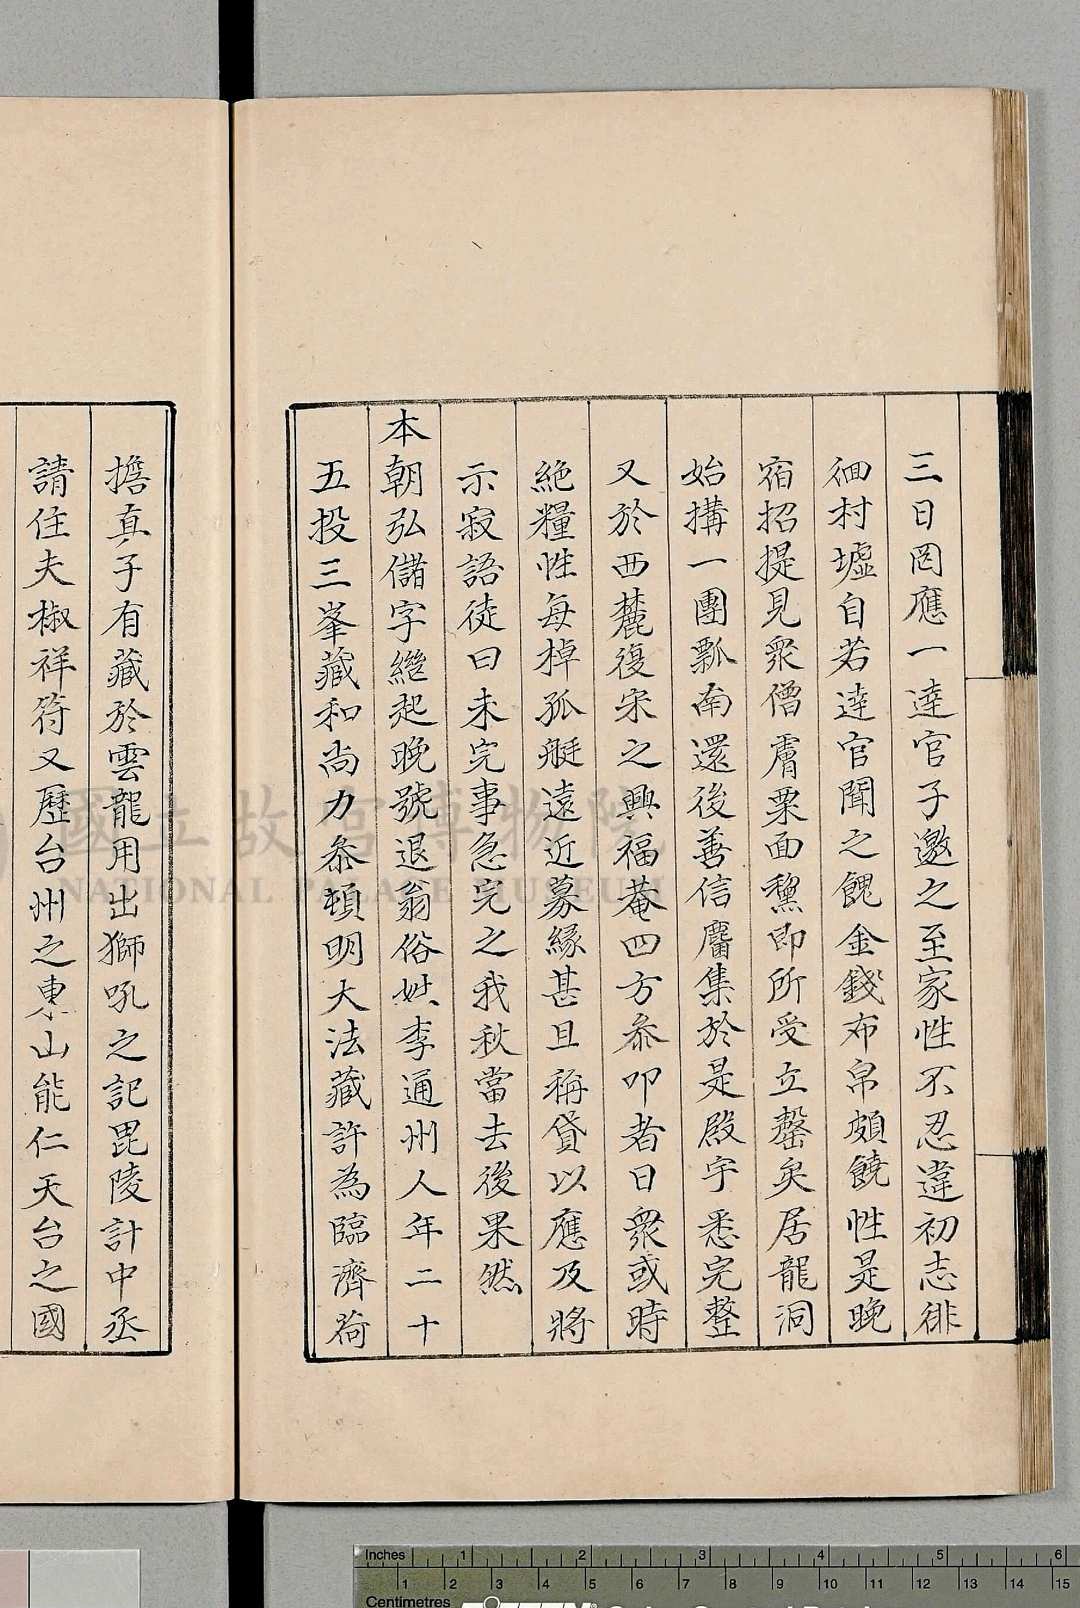 三日罔應一達官子邀之至家性不忍違初志徘
徊村墟自若達官聞之餽金錢布帛頗饒性是晚
宿招提見衆僧膚栗面黧即所受立罄矣居龍洞
始搆一團瓢南還後善信麕集於是殿宇悉完整
又於西麓復宋之興福菴四方叅叩者日衆或時
絶糧性每掉孤艇遠近募緣甚且稱貸以應及將
示寂語徒曰未完事急完之我秋當去後果然
本朝弘儲字繼起晚號退翁俗姓李通州人年二十
五投三峯藏和尚力叅頓明大法藏許為臨濟荷
擔真子有藏於雲龍用出獅吼之記毘陵計中丞
請住夫椒祥符又歷台州之東山能仁天台之國
國立故宮博物院
NATIONAL PALACE MUSEUM
Inches 1 2 3 4 5 6
1 2 3 4 5 6 7 8 9 10 11 12 13 14 15
Centimetres